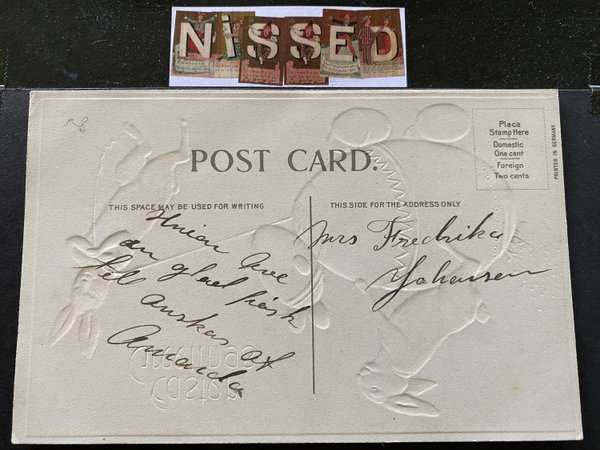 NiSSED
POST CARD.
Place
Stamp Here
Domestic
One cent
Foreign
Two cents
PRINTED IN GERMANY.
THIS SPACE MAY BE USED FOR WRITING
THIS SIDE FOR THE ADDRESS ONLY
en glad påsk
till önskas af
Amanda
Mrs Fredrika
Johansen
Easter
Greetings